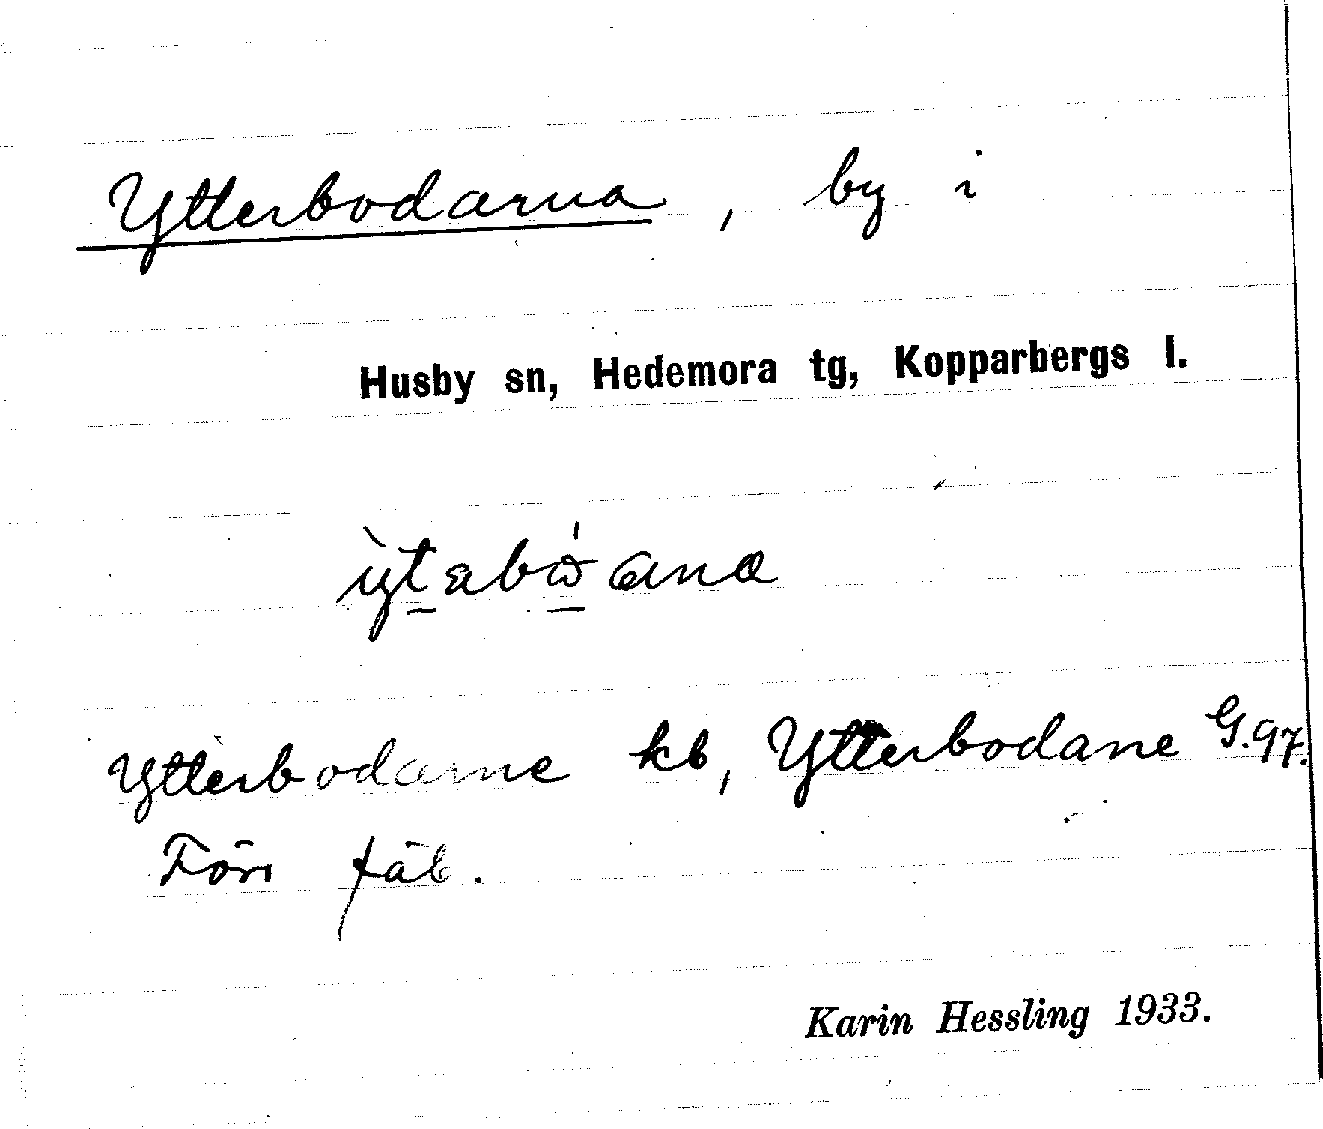 Ytterbodarna, by i
Husby sn, Hedemora tg, Kopparbergs l.
Ytterbodarne kb, Ytterbodane G.97.
Förr fäb.
Karin Hessling 1933.